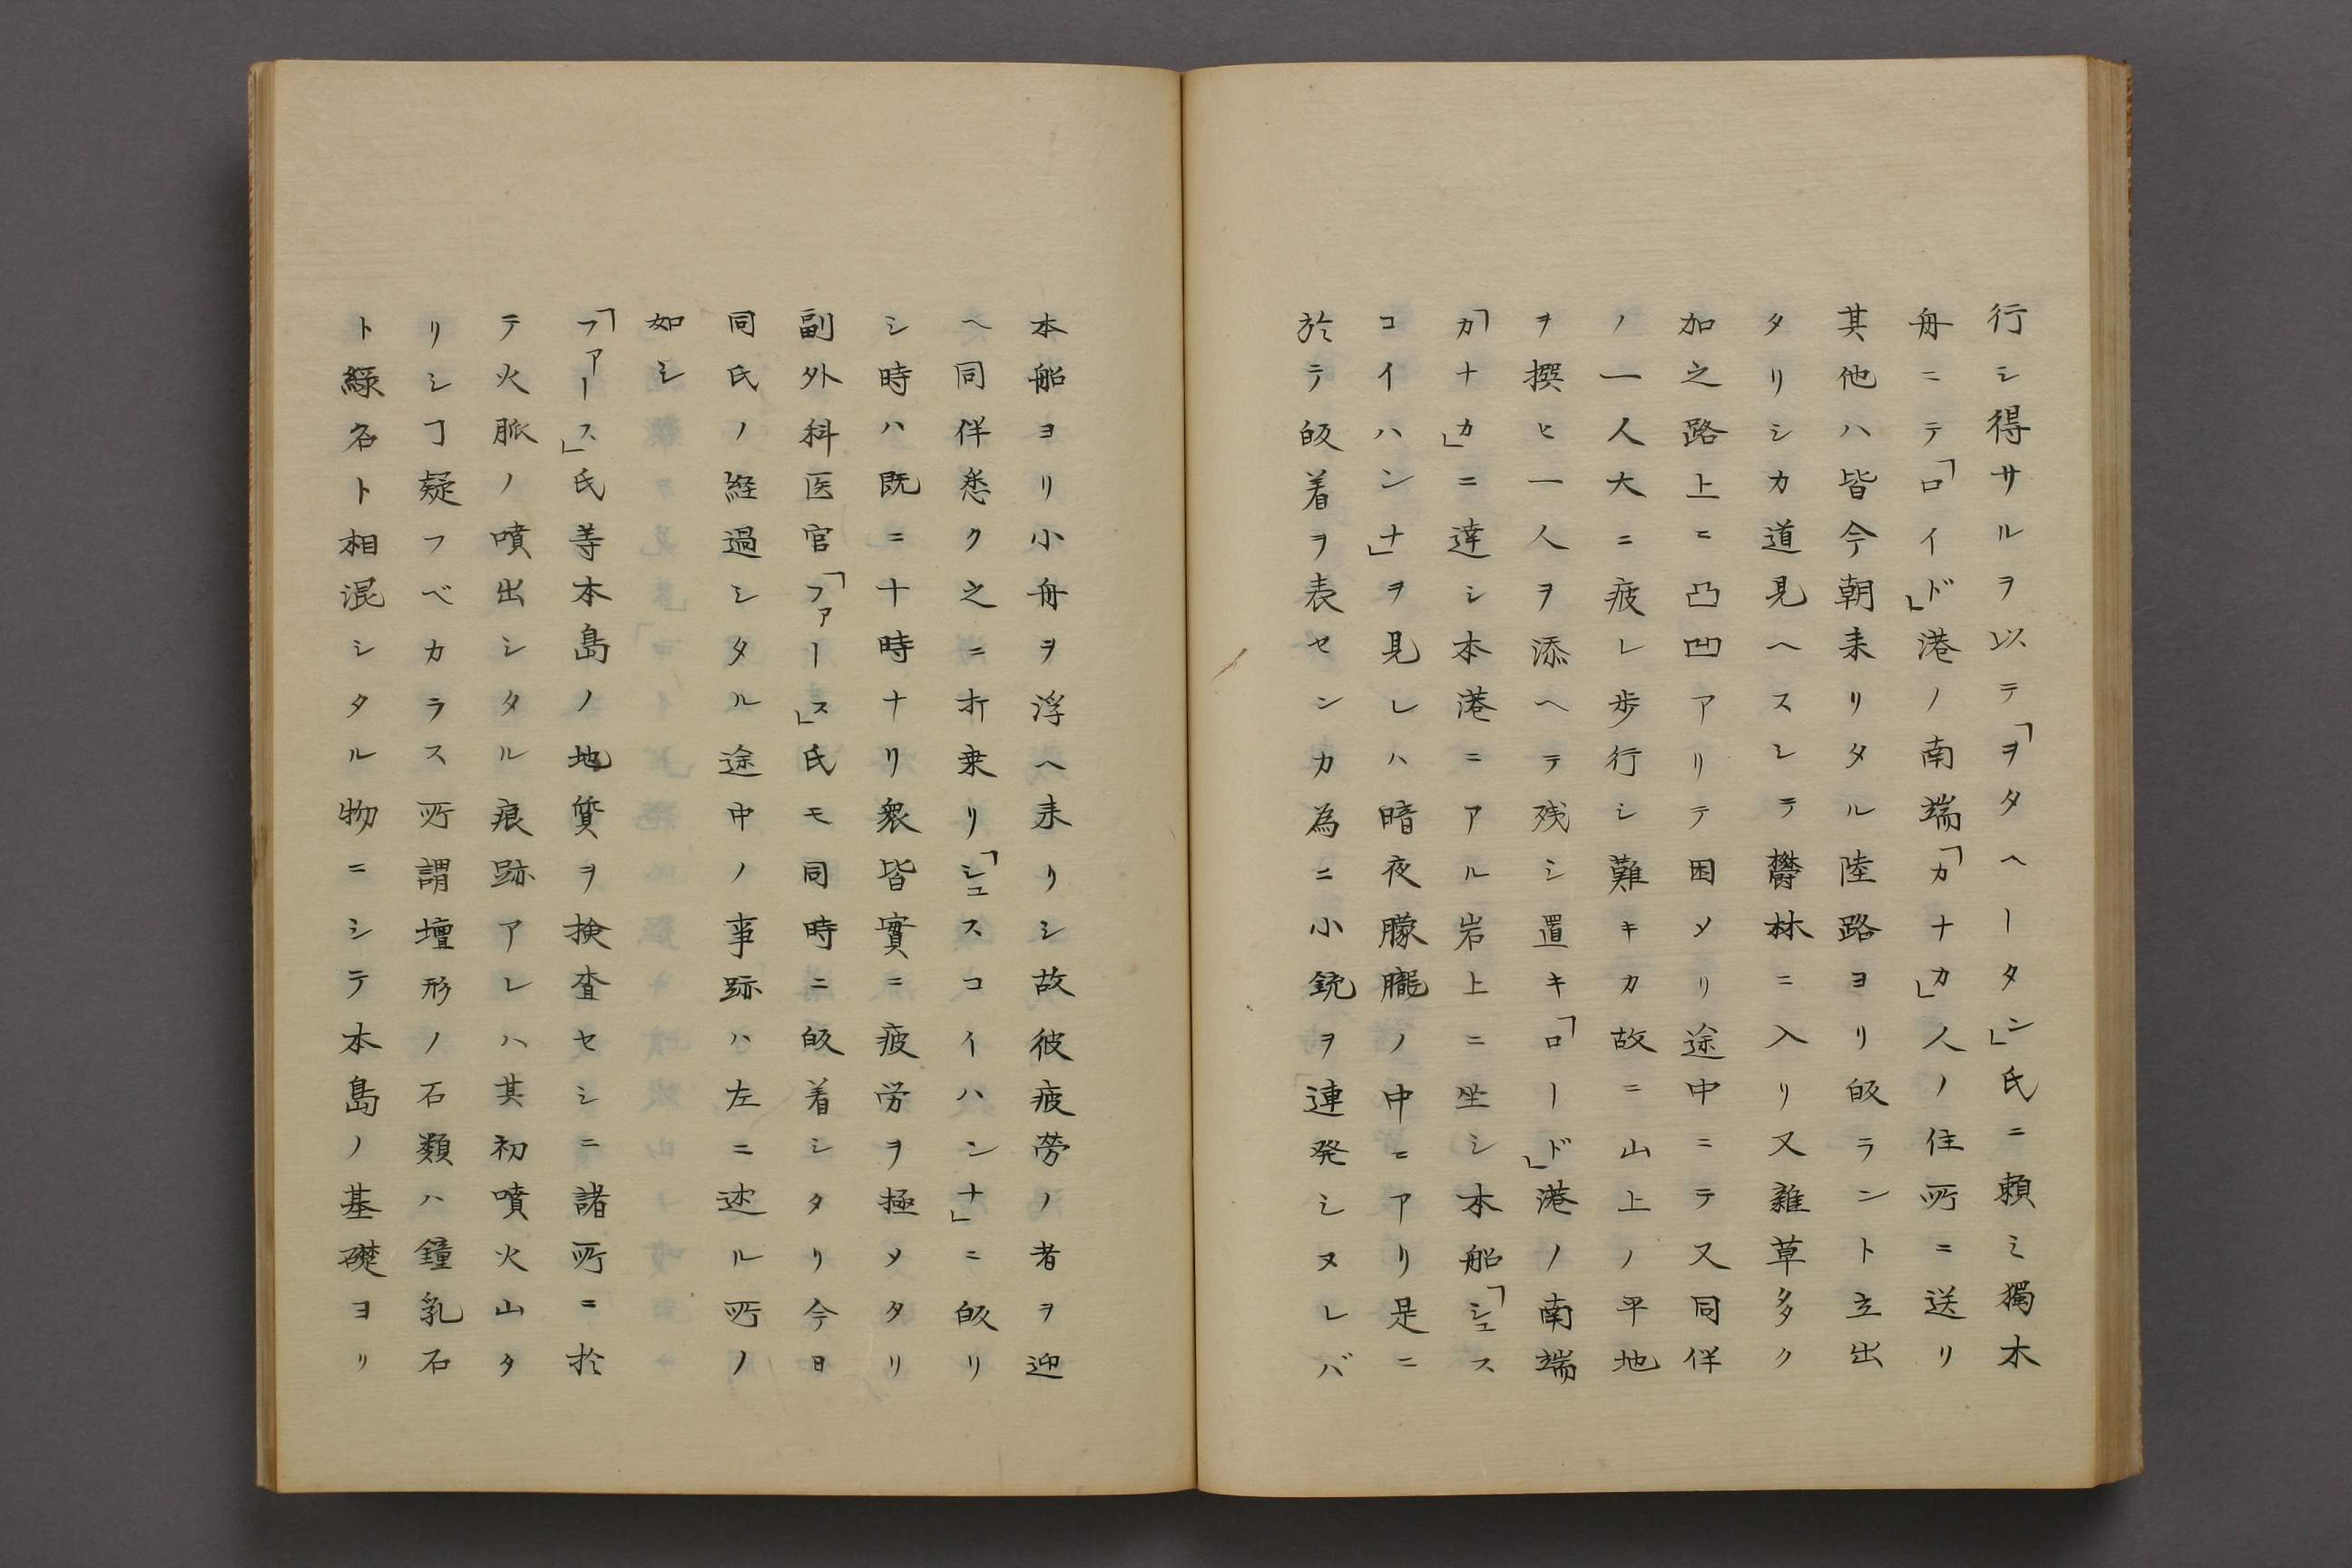 行シ得サルヲ以テ「ヲタヘータン」氏ニ頼ミ獨木
舟ニテ「ロイド」港ノ南端「カナカ」人ノ住所ニ送リ
其他ハ皆今朝来リタル陸路ヨリ皈ラント立出
タリシカ道見ヘスシテ欝林ニ入リ又雑草多ク
加之路上ニ凸凹アリテ困メリ途中ニテ又同伴
ノ一人大ニ疲レ歩行シ難キカ故ニ山上ノ平地
ヲ撰ヒ一人ヲ添ヘテ残シ置キ「ロード」港ノ南端
「カナカ」ニ達シ本港ニアル岩上ニ坐シ本船「シェス
コイハンナ」ヲ見レハ暗夜朦朧ノ中ニアリ是ニ
於テ皈着ヲ表センカ為ニ小銃ヲ連発シヌレバ
本船ヨリ小舟ヲ浮ヘ来リシ故彼疲労ノ者ヲ迎
ヘ同伴悉ク之ニ打乗リ「シェスコイハンナ」ニ皈リ
シ時ハ既ニ十時ナリ衆皆實ニ疲労ヲ極メタリ
副外科医官「ファース」氏モ同時ニ皈着シタリ今日
同氏ノ経過シタル途中ノ事跡ハ左ニ述ル所ノ
如シ
「ファース」氏等本島ノ地質ヲ検査セシニ諸所ニ於
テ火脈ノ噴出シタル痕跡アレハ其初噴火山タ
リシヿ疑フベカラス所謂壇形ノ石類ハ鐘乳石
ト緑石ト相混シタル物ニシテ本島ノ基礎ヨリ